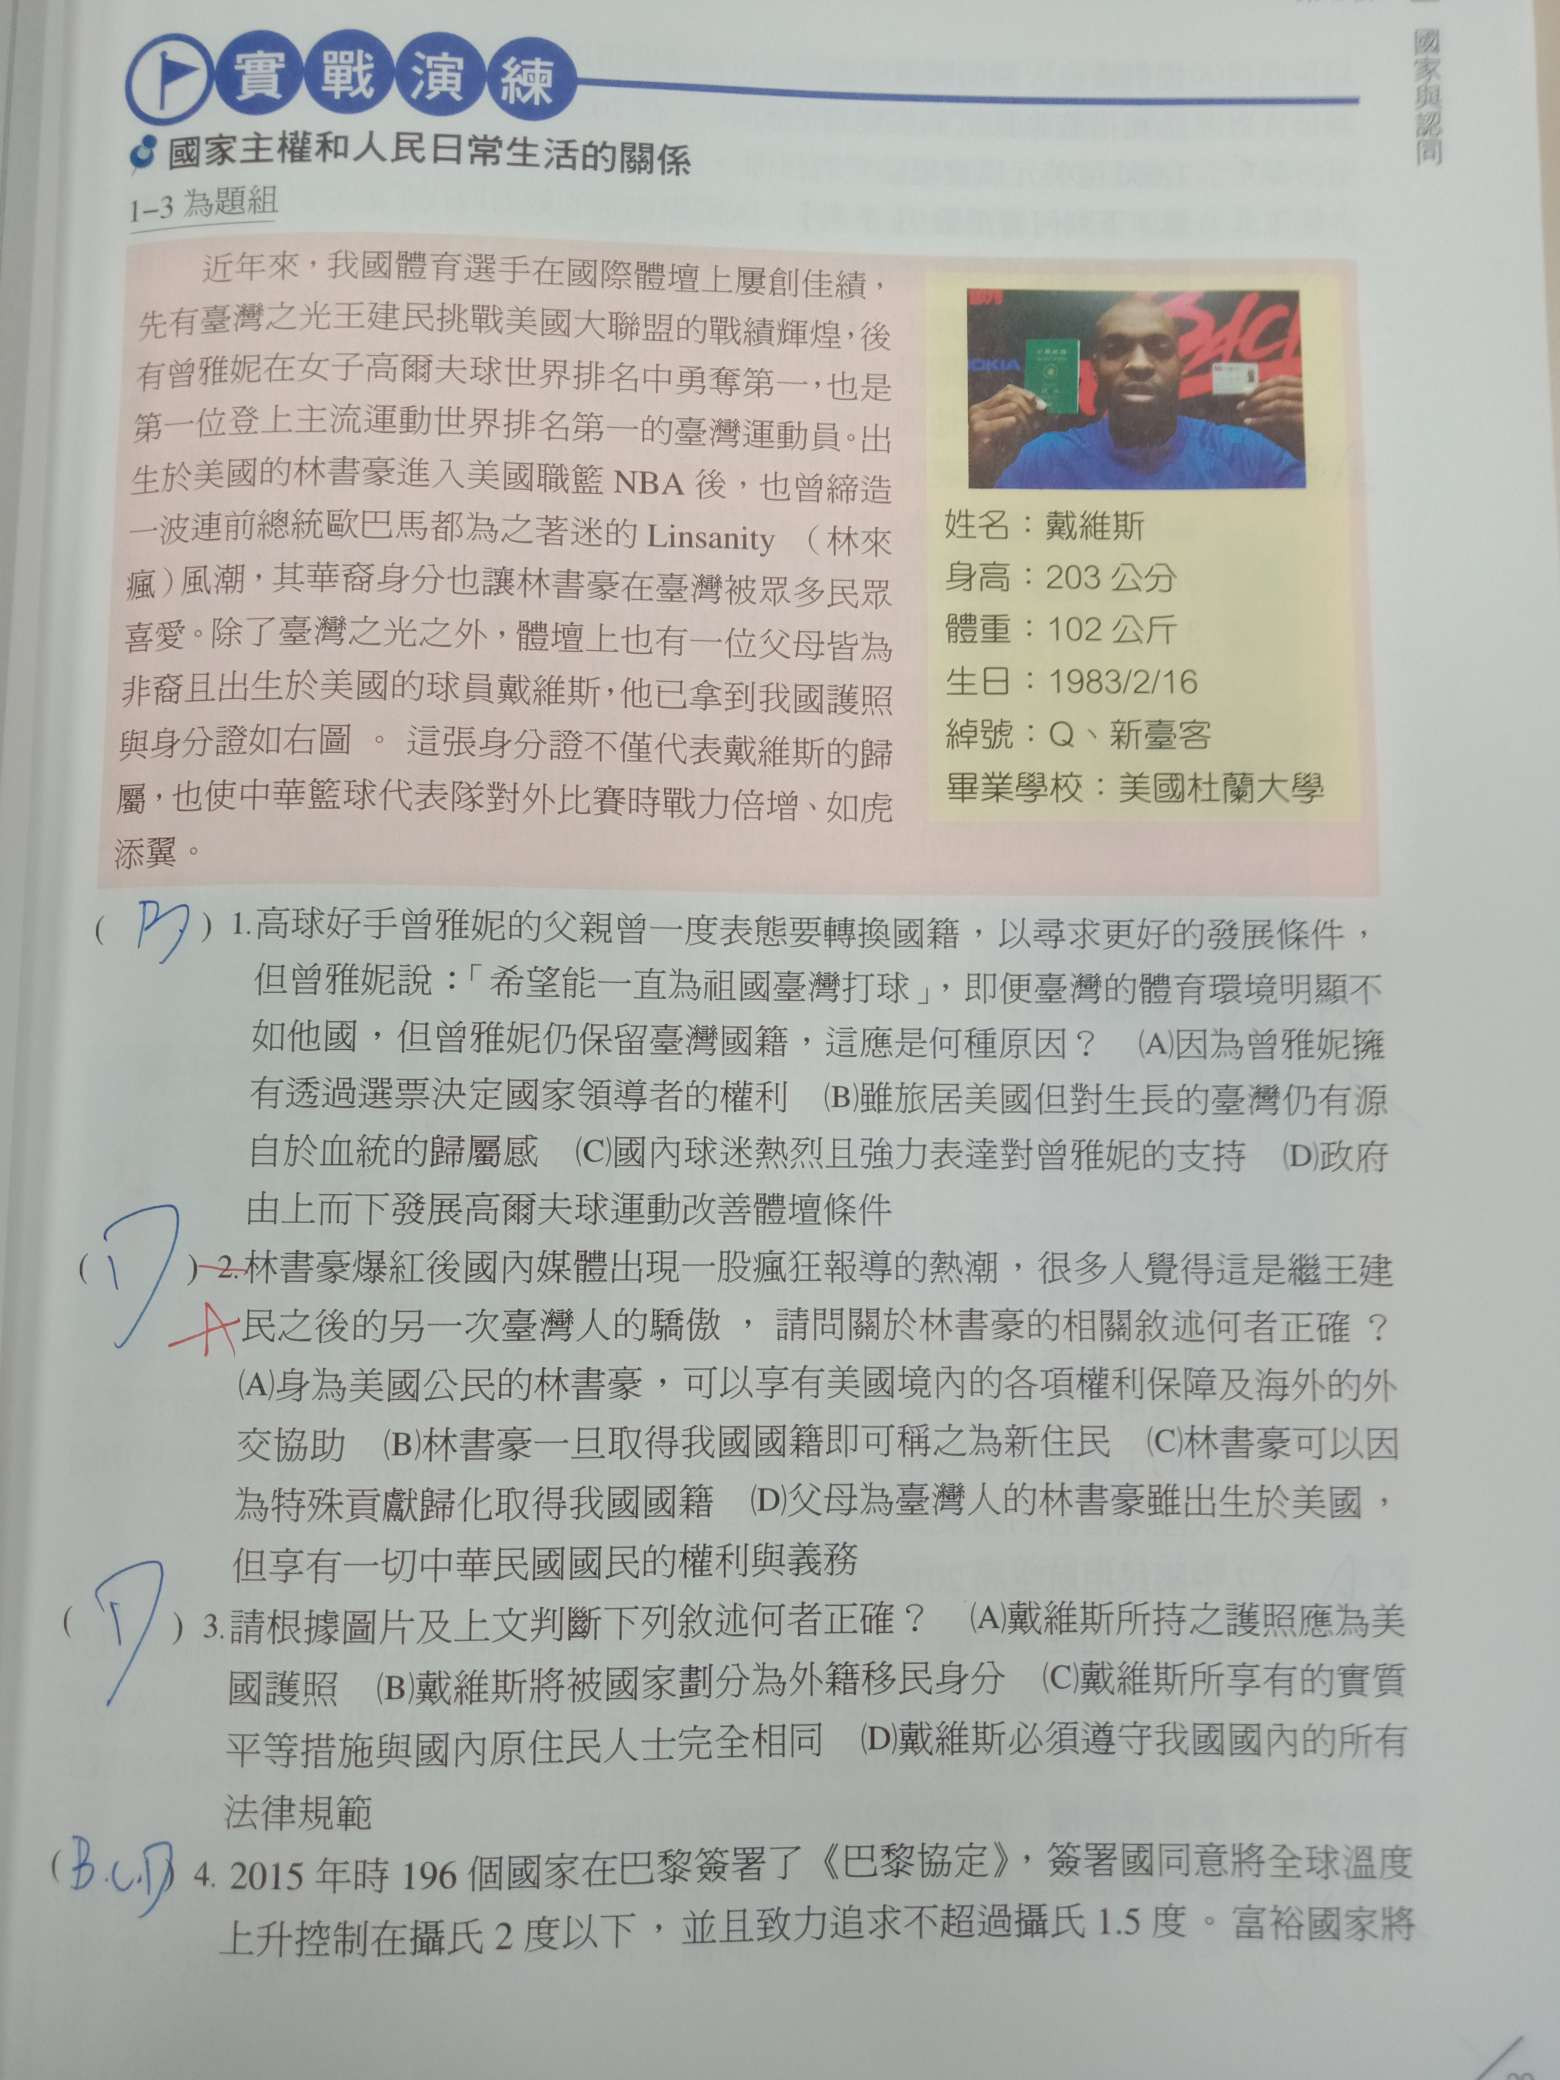 國家與認同
實戰演練
國家主權和人民日常生活的關係
1-3 為題組
近年來，我國體育選手在國際體壇上屢創佳績，
先有臺灣之光王建民挑戰美國大聯盟的戰績輝煌，後
有曾雅妮在女子高爾夫球世界排名中勇奪第一，也是
第一位登上主流運動世界排名第一的臺灣運動員。出
生於美國的林書豪進入美國職籃 NBA 後，也曾締造
一波連前總統歐巴馬都為之著迷的 Linsanity （林來
瘋）風潮，其華裔身分也讓林書豪在臺灣被眾多民眾
喜愛。除了臺灣之光之外，體壇上也有一位父母皆為
非裔且出生於美國的球員戴維斯，他已拿到我國護照
與身分證如右圖 。 這張身分證不僅代表戴維斯的歸
屬，也使中華籃球代表隊對外比賽時戰力倍增、如虎
添翼。
NOKIA
姓名：戴維斯
身高：203 公分
體重：102 公斤
生日：1983/2/16
綽號：Q、新臺客
畢業學校：美國杜蘭大學
( B ) 1.高球好手曾雅妮的父親曾一度表態要轉換國籍，以尋求更好的發展條件，
但曾雅妮說：「希望能一直為祖國臺灣打球」，即便臺灣的體育環境明顯不
如他國，但曾雅妮仍保留臺灣國籍，這應是何種原因？ (A)因為曾雅妮擁
有透過選票決定國家領導者的權利 (B)雖旅居美國但對生長的臺灣仍有源
自於血統的歸屬感 (C)國內球迷熱烈且強力表達對曾雅妮的支持 (D)政府
由上而下發展高爾夫球運動改善體壇條件
( D ) 2.林書豪爆紅後國內媒體出現一股瘋狂報導的熱潮，很多人覺得這是繼王建
A 民之後的另一次臺灣人的驕傲 ， 請問關於林書豪的相關敘述何者正確 ？
(A)身為美國公民的林書豪，可以享有美國境內的各項權利保障及海外的外
交協助 (B)林書豪一旦取得我國國籍即可稱之為新住民 (C)林書豪可以因
為特殊貢獻歸化取得我國國籍 (D)父母為臺灣人的林書豪雖出生於美國，
但享有一切中華民國國民的權利與義務
( D ) 3.請根據圖片及上文判斷下列敘述何者正確？ (A)戴維斯所持之護照應為美
國護照 (B)戴維斯將被國家劃分為外籍移民身分 (C)戴維斯所享有的實質
平等措施與國內原住民人士完全相同 (D)戴維斯必須遵守我國國內的所有
法律規範
( B.C.D ) 4. 2015 年時 196 個國家在巴黎簽署了《巴黎協定》，簽署國同意將全球溫度
上升控制在攝氏 2 度以下，並且致力追求不超過攝氏 1.5 度。富裕國家將